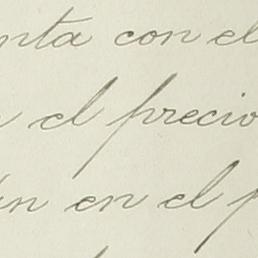 nta con el
el precio
en el p